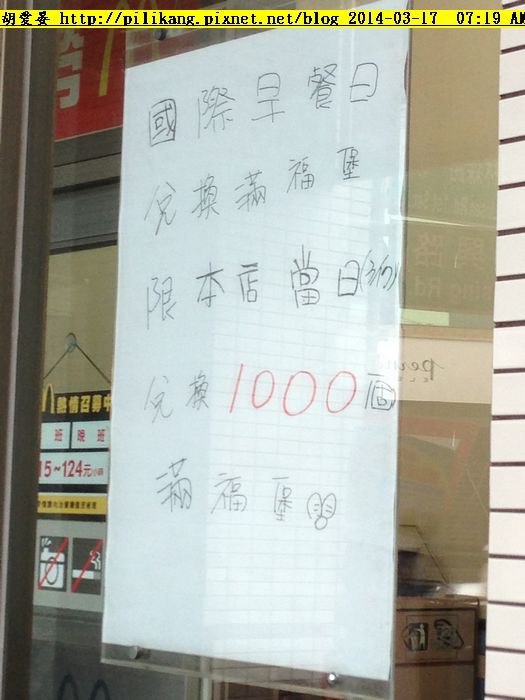 胡愛晏 http://pilikang.pixnet.net/blog 2014-03-17 07:19 AM
國際早餐日
兌換滿福堡
限本店當日(3/17)
兌換1000個
滿福堡
熱情召募中
班 晚班
15~124元/小時
興路